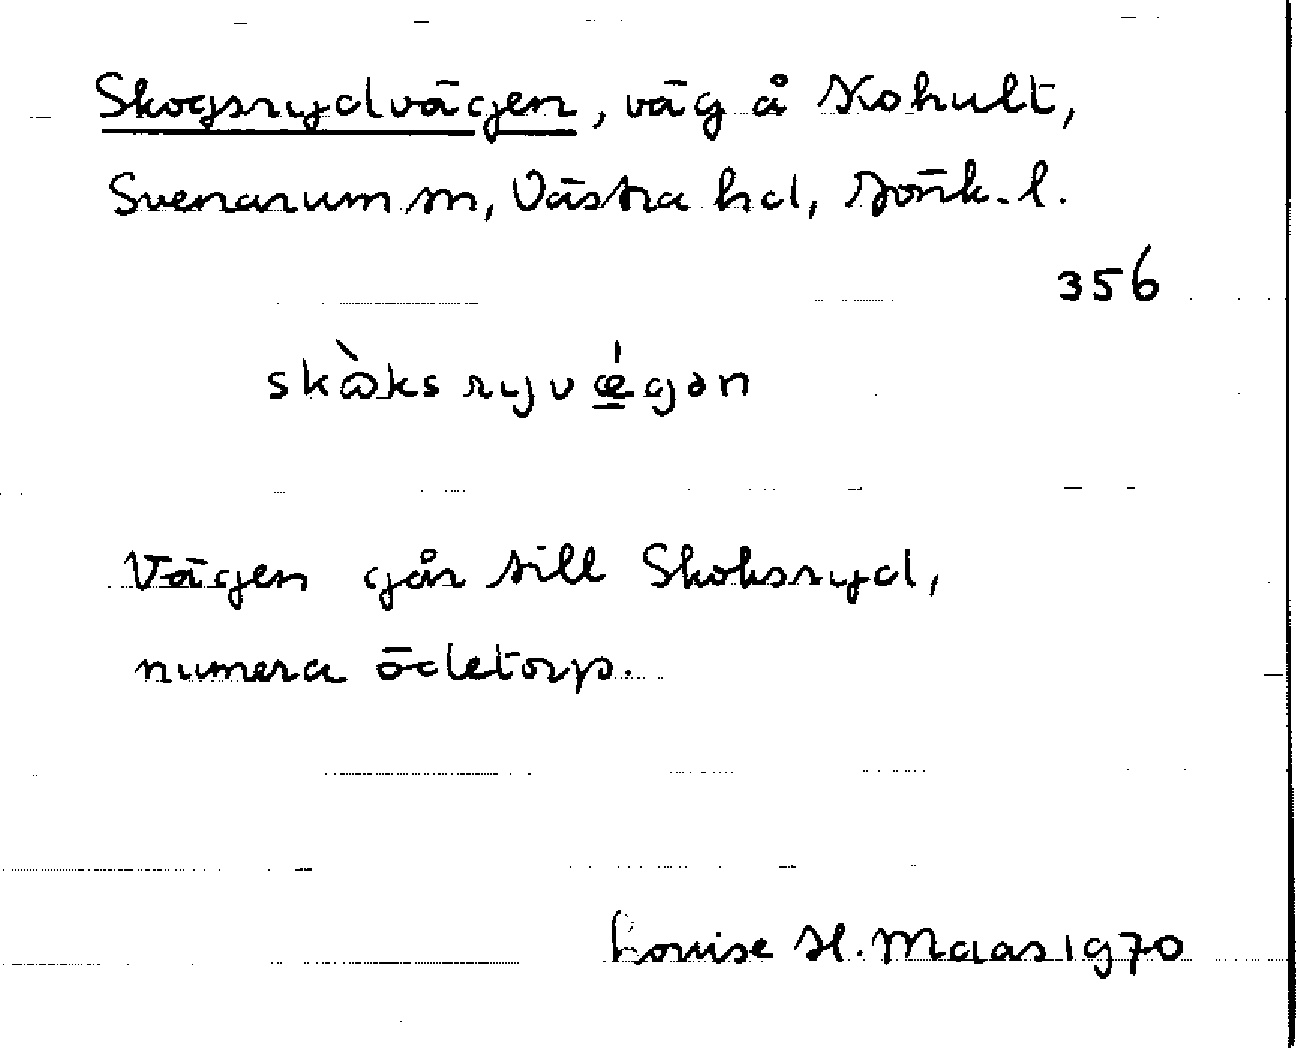 Skogsrydvägen, väg å Kohult,
Svenarum sn, Västra hd, Jönk. l.
356
skὼks ryvǽgən
Vägen går till Skoksryd,
numera ödetorp.
Louise H. Maas 1970